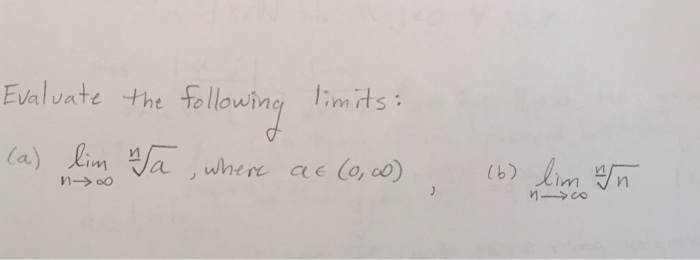 Evaluate the following limits:
(a) lim n→∞ ⁿ√a , where a ∈ (0,∞) , (b) lim n→∞ ⁿ√n